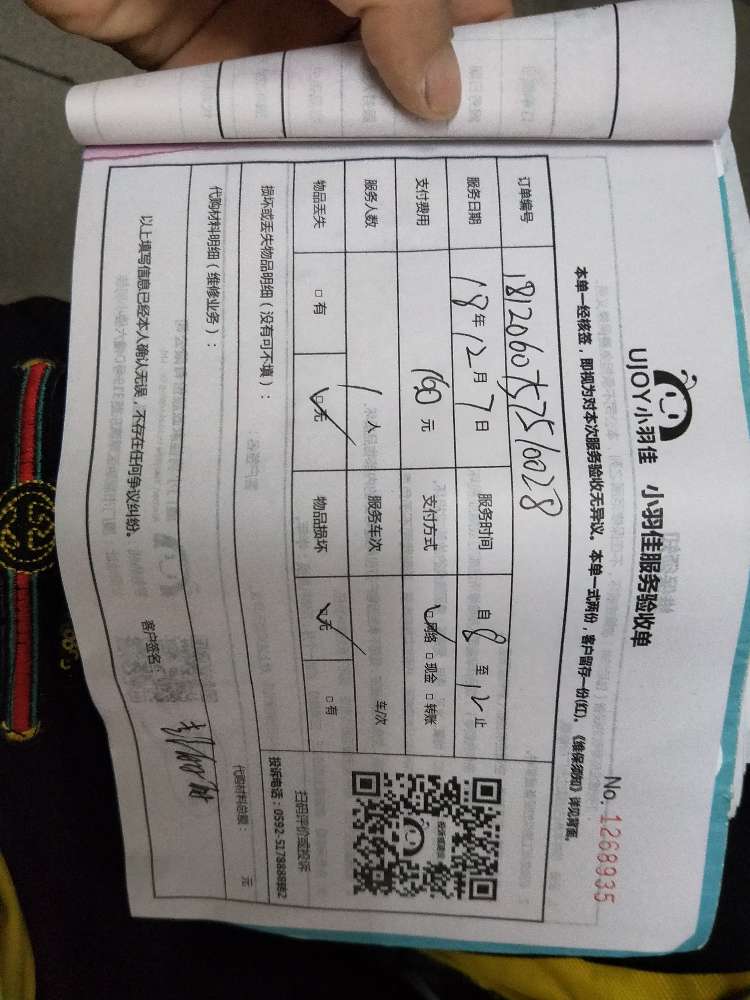 UJOY小羽佳 小羽佳服务验收单
No. 1268935
本单一经核签，即视为对本次服务验收无异议。本单一式两份，客户留存一份(红)。《维保须知》详见背面。
订单编号 1812060757510028
服务日期 18年12月7日 服务时间 自8至12止
支付费用 160元 支付方式 □网络 □现金 □转账
服务人数 1人 服务车次 车/次
物品丢失 □有 □无 物品损坏 □无 □有
投诉或建议
扫码评价或投诉
投诉电话：0592-5178888转2
损坏或丢失物品明细（没有可不填）：
代购材料明细（维修业务）：
代购材料总额： 元
以上填写信息已经本人确认无误，不存在任何争议纠纷。
客户签名：